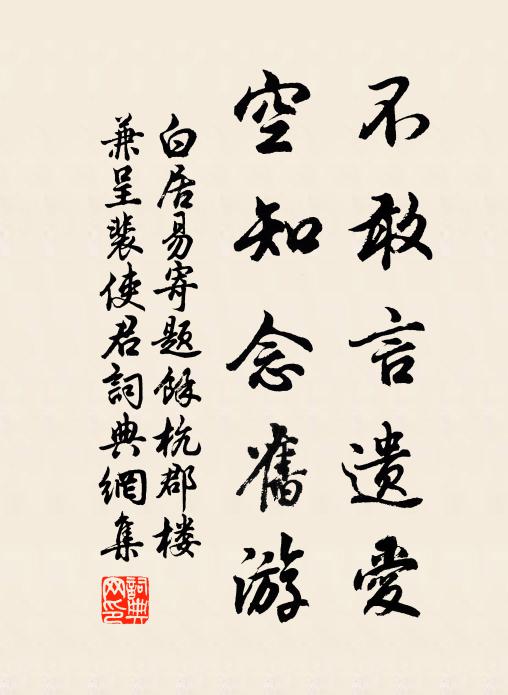 不敢言遗愛
空知念舊游
白居易寄題餘杭郡楼
兼呈裴使君詞典網集